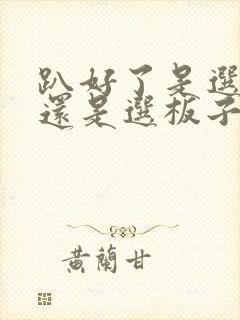 趴好了是選
還是選板子
黃蘭甘